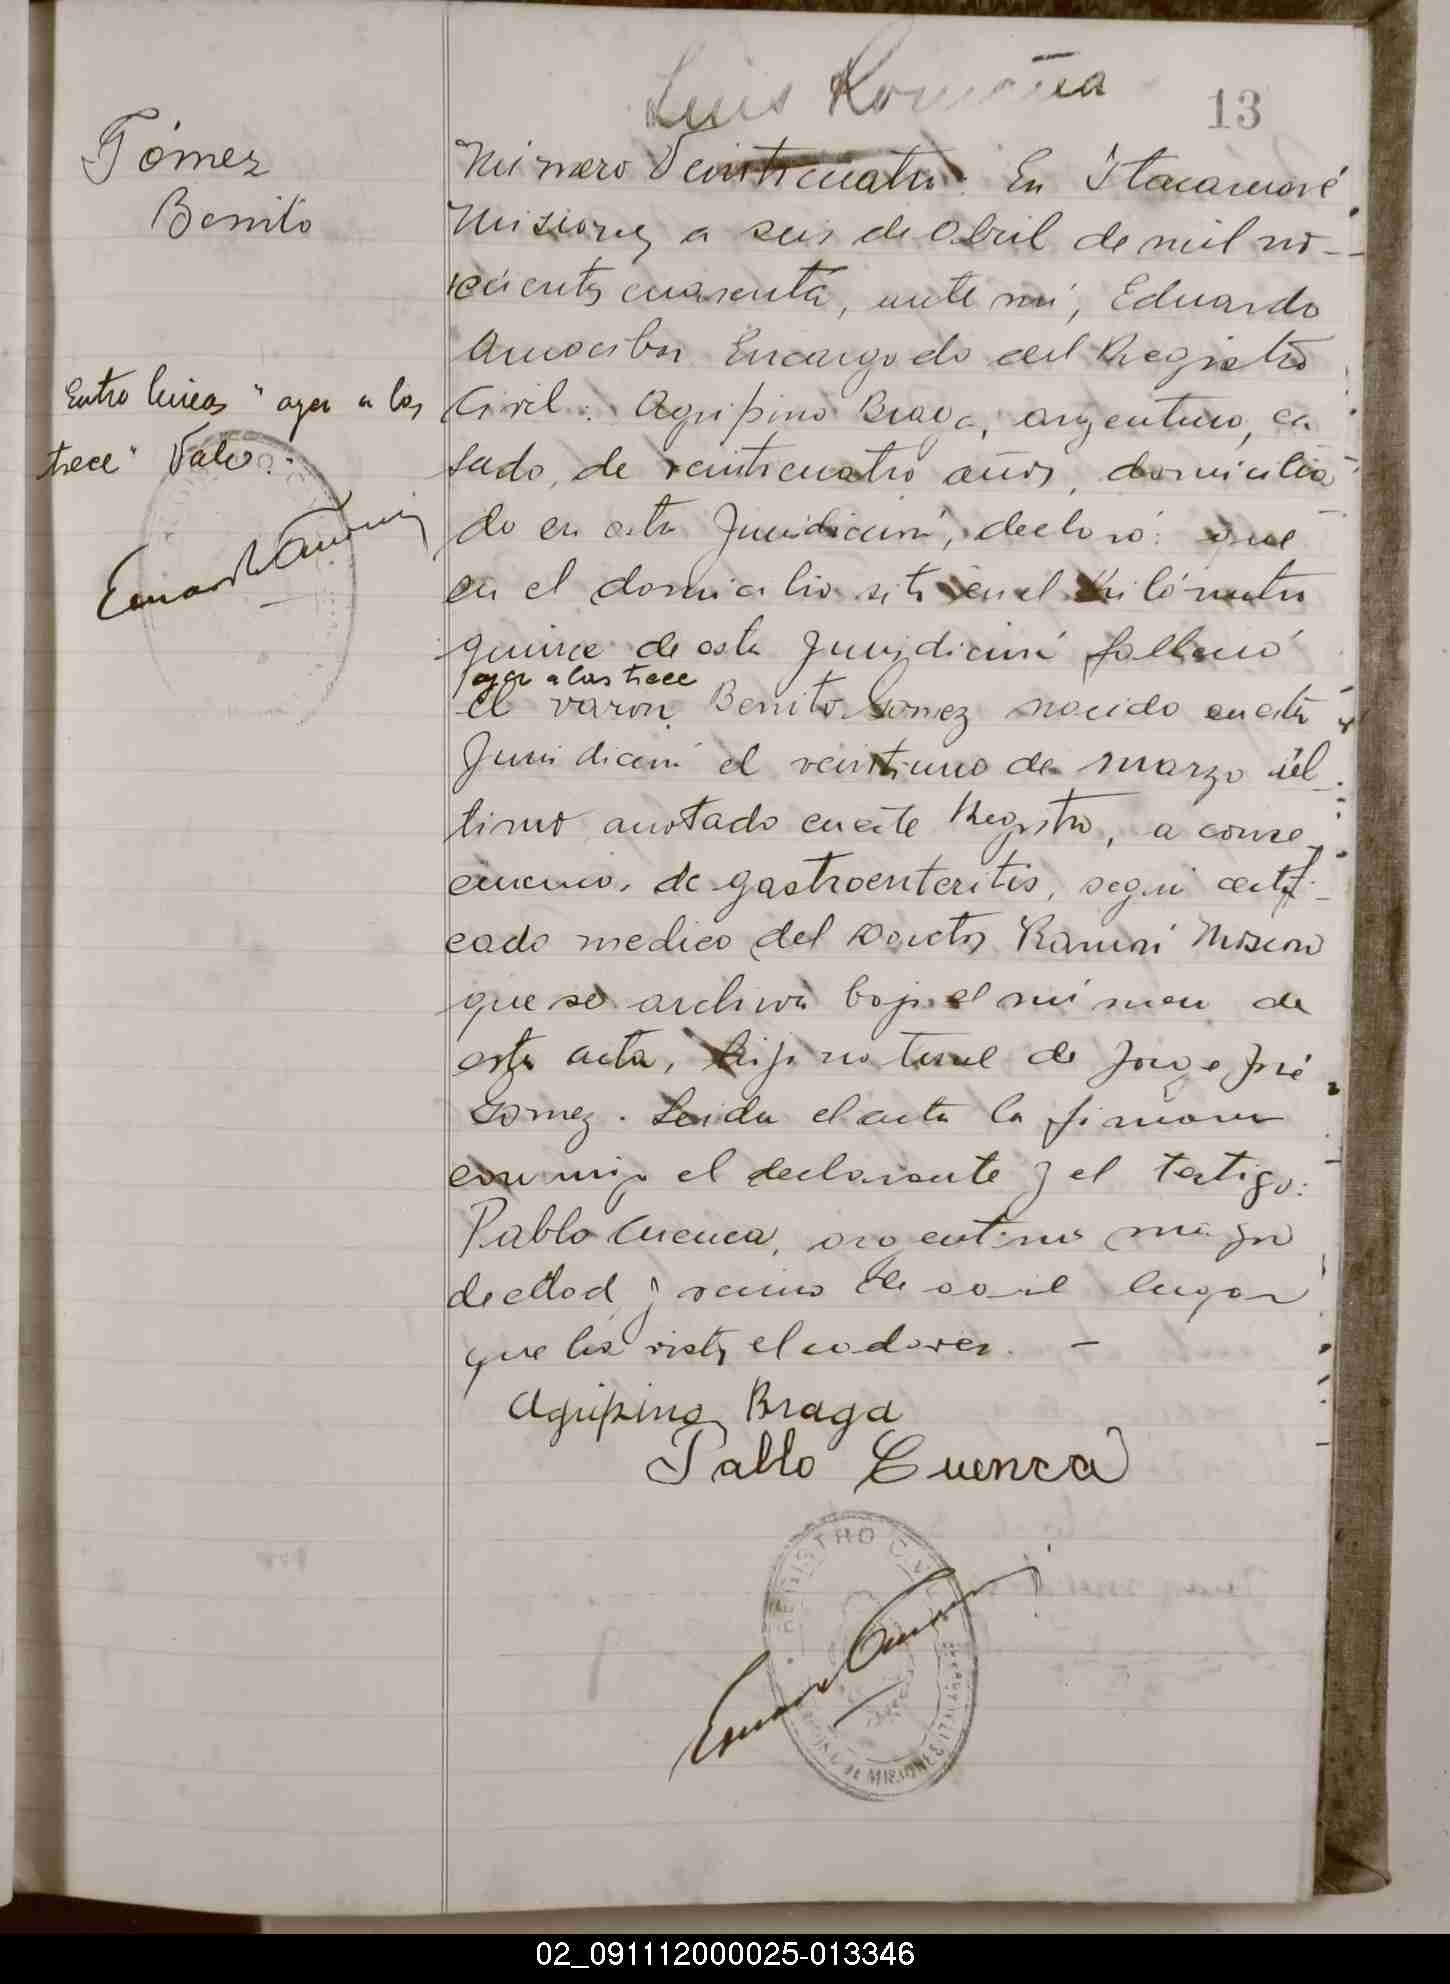 Luis Romaña
13
Gómez
Benito
Número Veinticuatro: En Itacaruaré
Misiones a seis de Abril de mil no-
vecientos cuarenta, ante mí, Eduardo
Encargado del Registro
Civil: Agripino Braga, argentino, ca
sado, de veinticuatro años, domicilia
do en esta Jurisdicción, declaró: que
en el domicilio sito en el Kilómetro
quince de esta Jurisdicción falleció
ayer a las trece
el varón Benito Gomez nacido en esta
Jurisdicción el veintiuno de marzo úl
timo anotado en este Registro, a conse
cuencia de gastroenteritis, según certifi-
cado medico del Doctor Ramón
que se archiva bajo el número de
esta acta, hijo natural de Jorge José
Gomez. Leida el acta la firmaron
conmigo el declarante y el testigo:
Pablo Cuenca, argentino mayor
de edad y vecino de este lugar
que los vistó el cadaver. -
Agripino Braga
Pablo Cuenca
Entre lineas "ayer a las
trece" Vale.-
REGISTRO CIVIL
MISIONES
02_091112000025-013346